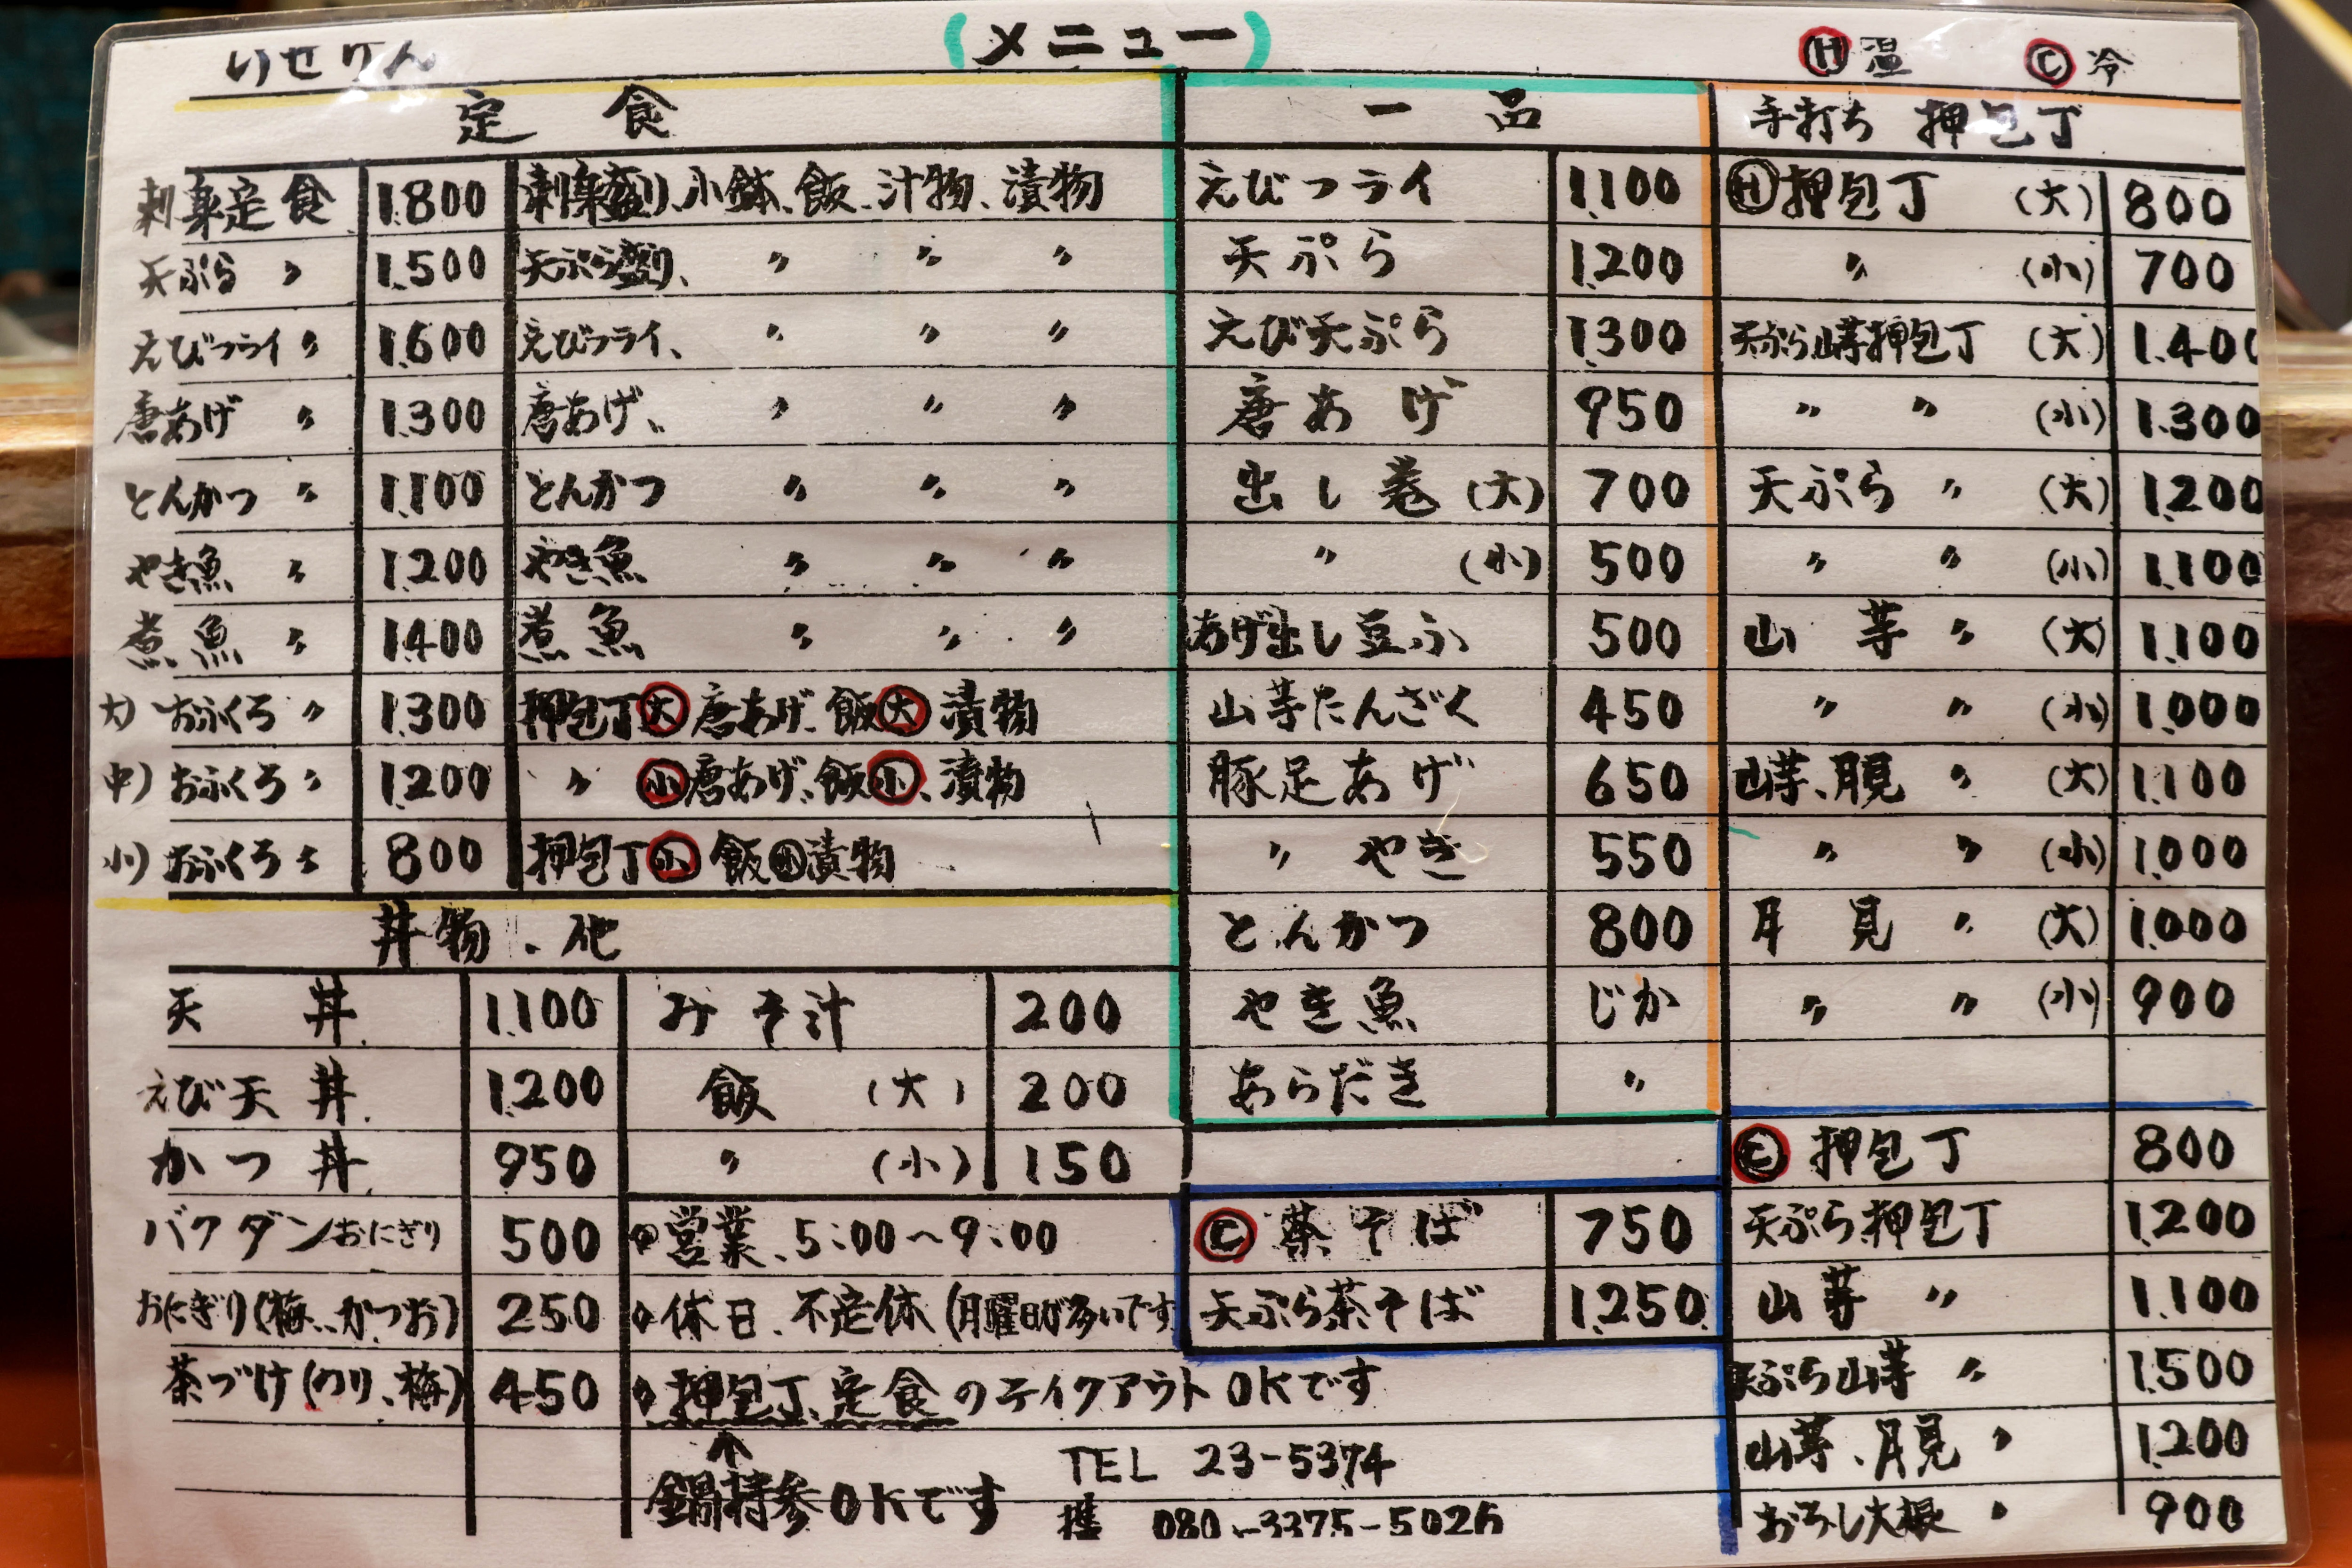 いせけん
(メニュー)
Ⓗ温 Ⓒ冷
定食
刺身定食 1.800 刺身盛り、小鉢、飯、汁物、漬物
天ぷら 〃 1.500 天ぷら盛り、 〃 〃 〃
えびフライ 〃 1.600 えびフライ、 〃 〃 〃
唐あげ 〃 1.300 唐あげ、 〃 〃 〃
とんかつ 〃 1.100 とんかつ 〃 〃 〃
やき魚 〃 1.200 やき魚 〃 〃 〃
煮魚 〃 1.400 煮魚 〃 〃 〃
大) おふくろ 〃 1.300 押包丁㊛大 唐あげ、飯 大 漬物
中) おふくろ 〃 1.200 〃 小 唐あげ、飯 小、漬物
小) おふくろ 〃 800 押包丁 小 飯 小 漬物
丼物・他
天丼 1.100
えび天丼 1.200
かつ丼 950
バクダンおにぎり 500
おにぎり(梅、かつお) 250
茶づけ(のり、梅) 450
みそ汁 200
飯 (大) 200
〃 (小) 150
営業、5:00〜9:00
休日、不定休(月曜日が多いです
押包丁、定食のテイクアウトOKです
↑
鍋持参OKです
TEL 23-5374
携 080-3375-5026
一品
えびフライ 1.100
天ぷら 1.200
えび天ぷら 1.300
唐あげ 950
出し巻(大) 700
〃 (小) 500
あげ出し豆ふ 500
山芋たんざく 450
豚足あげ 650
〃 やき 550
とんかつ 800
やき魚 じか
あらだき 〃
Ⓒ 茶そば 750
天ぷら茶そば 1.250
手打ち 押包丁
Ⓗ押包丁 (大) 800
〃 (小) 700
天ぷら山芋押包丁 (大) 1.400
〃 〃 (小) 1.300
天ぷら 〃 (大) 1.200
〃 〃 (小) 1.100
山芋 〃 (大) 1.100
〃 〃 (小) 1.000
山芋、月見 〃 (大) 1.100
〃 〃 (小) 1.000
月見 〃 (大) 1.000
〃 〃 (小) 900
Ⓒ 押包丁 800
天ぷら押包丁 1.200
山芋 〃 1.100
天ぷら山芋 〃 1.500
山芋、月見 〃 1.200
おろし大根 〃 900